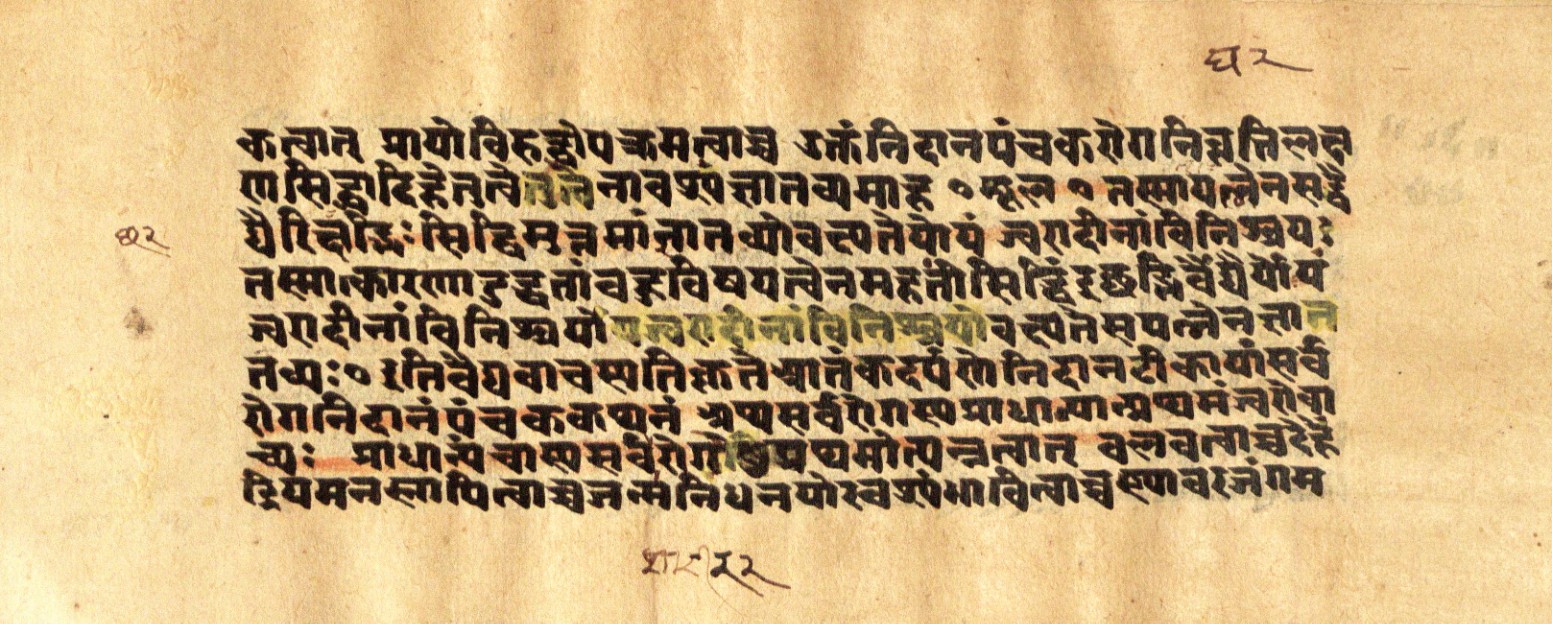 कत्वात् प्रायो विरुद्धोपक्रमत्वाच्च उक्तं निदानपंचकरोगनिवृत्तिलक्ष
णसिद्ध्यादिहेतुत्वे नावश्यं ज्ञातव्यमाह ० मूल ० तस्माद्यत्नेन सद्वै
द्यैरिच्छद्भिः सिद्धिमुत्तमां ज्ञातव्यो वक्ष्यते योयं ज्वरादीनां विनिश्चयः
तस्मात्कारणादुद्धतां बहुविषयत्वेन महतीं सिद्धिं इच्छद्भिर्वैद्यैर्योयं
ज्वरादीनां विनिश्चयो वक्ष्यते स यत्नेन ज्ञा
तव्यः ० इति वैद्यवाचस्पतिकृते आतंकदर्पणे निदानटीकायां सर्व
रोगनिदानं पंचककथनं अथ सर्वरोगस्य प्राधान्यात्प्रथमं ज्वरो वा
च्यः प्राधान्यं चास्य सर्वरोगे प्रथमोत्पन्नत्वात् बलवत्वाच्च देहें
द्रियमनस्तापित्वाच्च जन्मनिधनयोरवश्यंभावित्वाच्च स्थावरजंगम